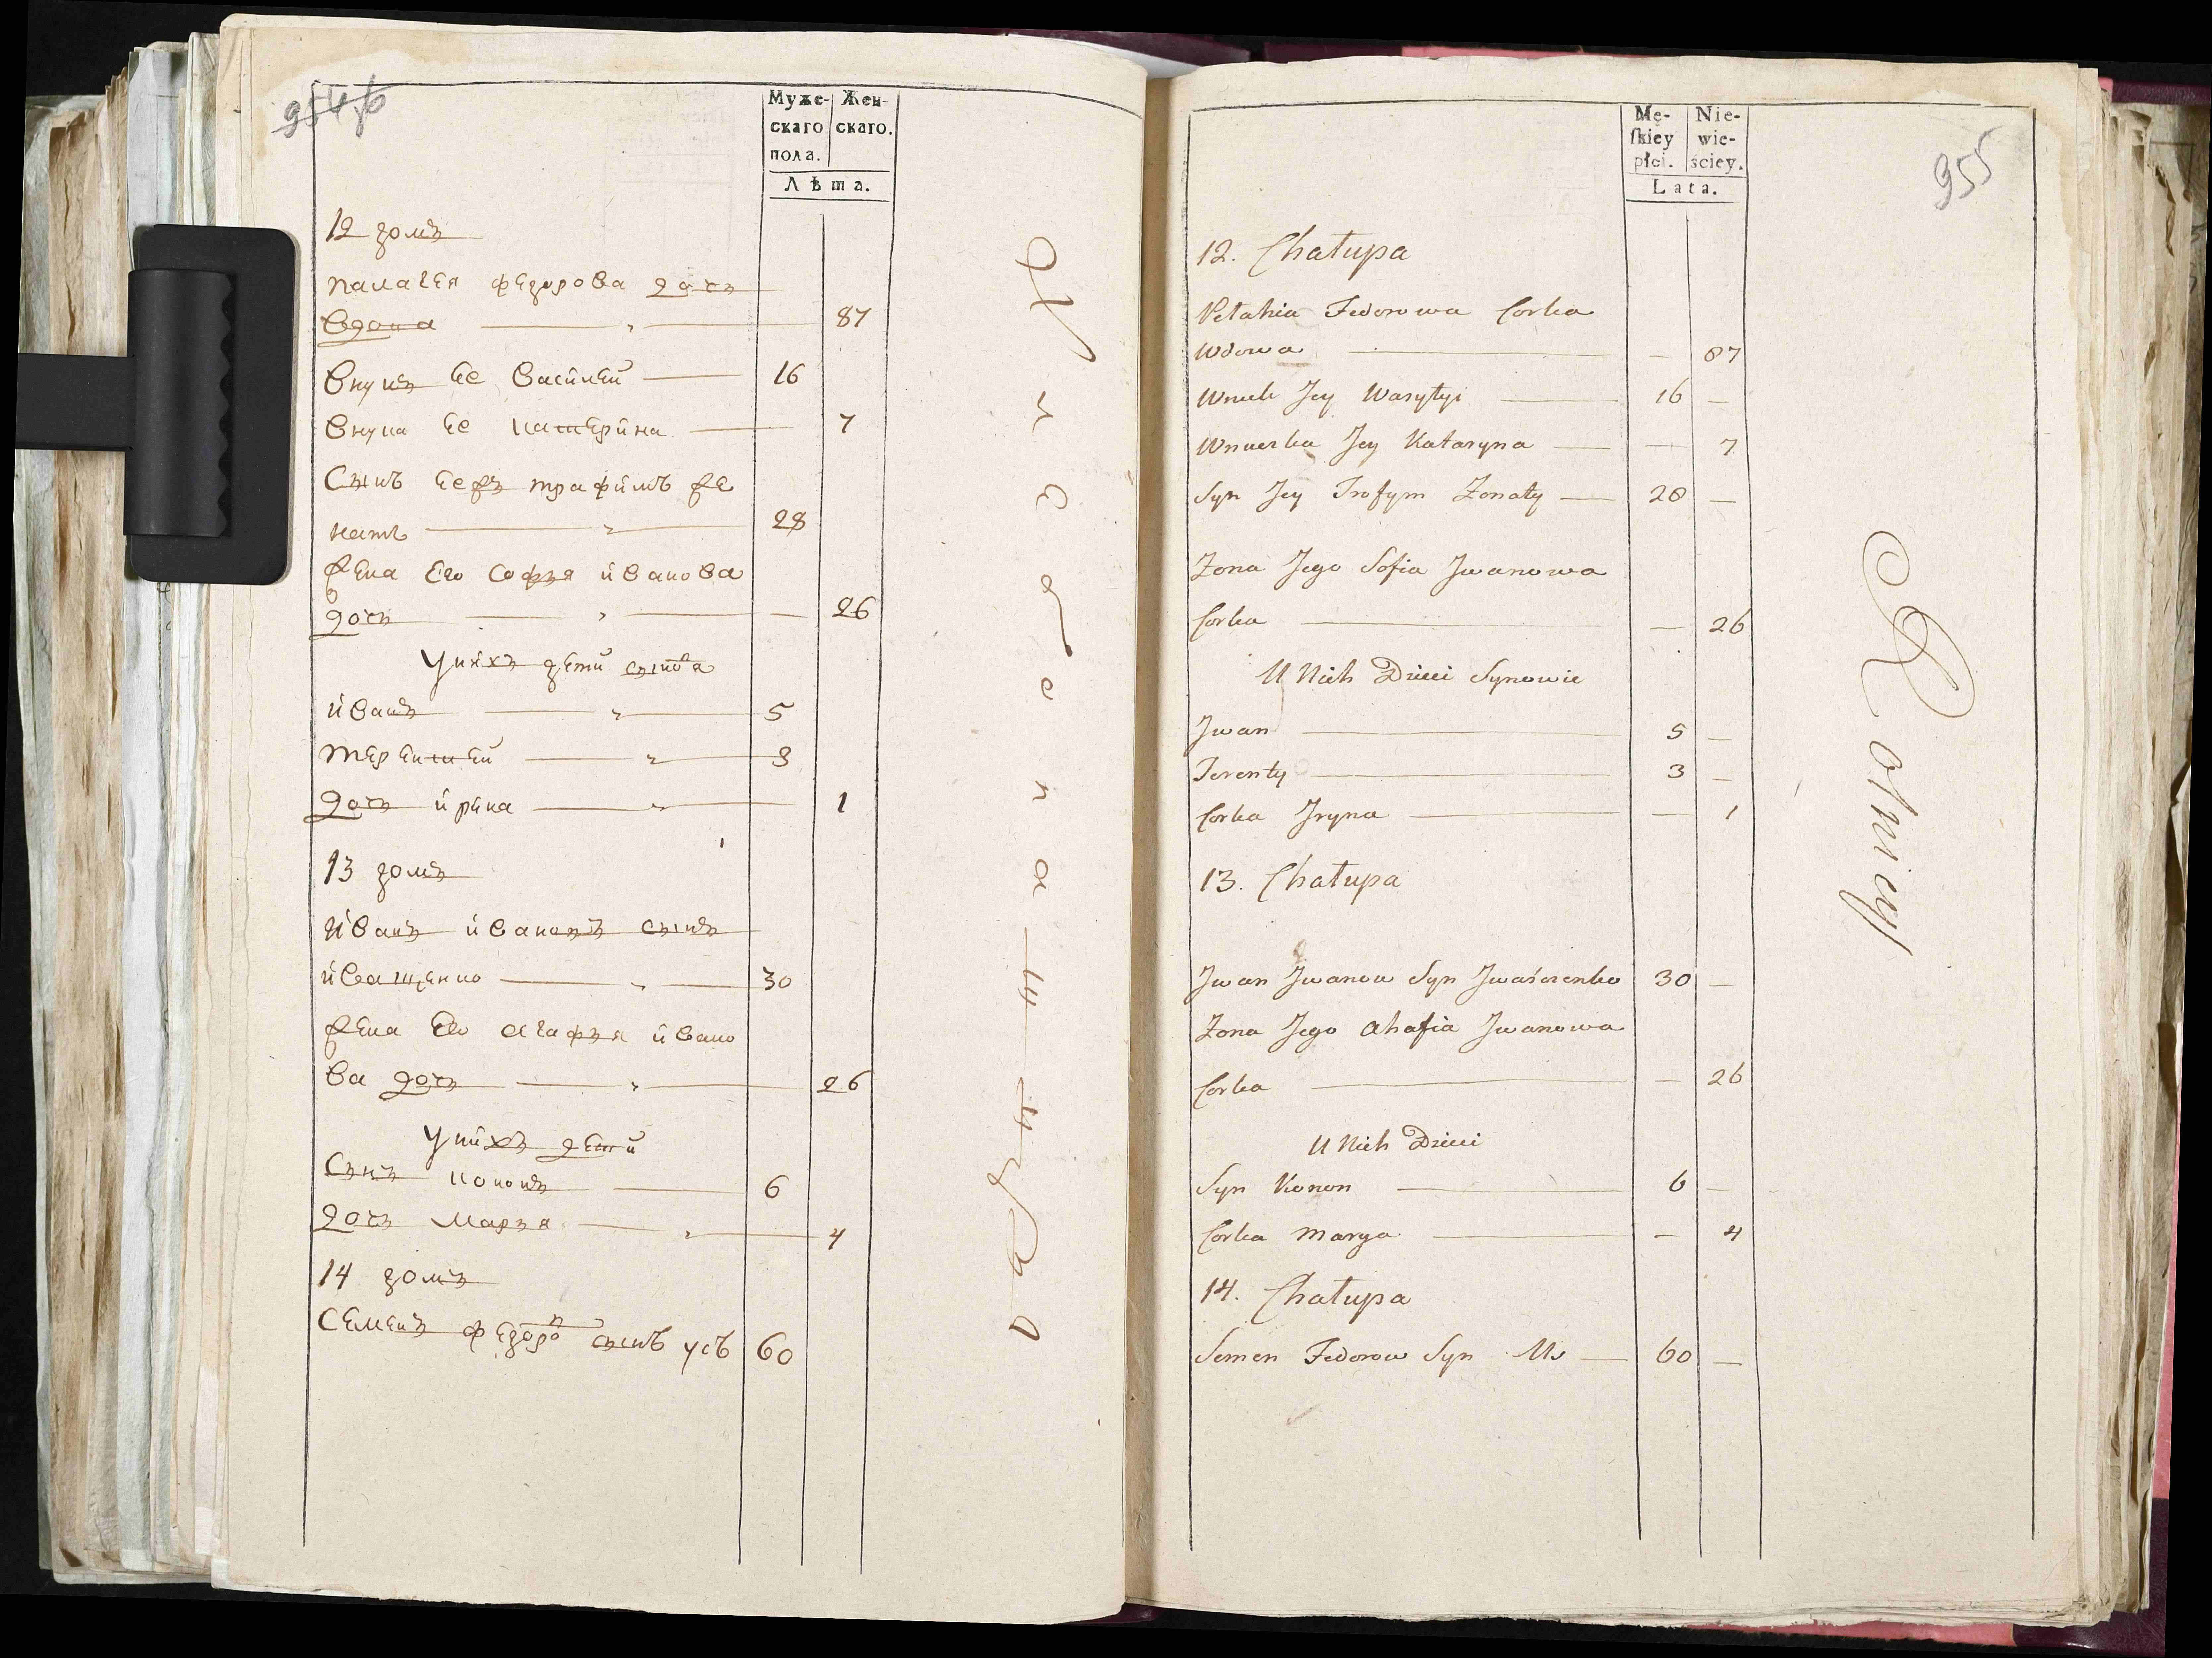 954об
Муже- Жен-
скаго скаго.
пола.
Лѣта.
12 домъ
Палагея Федорова дочь
вдова — 87
Внукъ ее Василей — 16
Внука ее Катерина — 7
Сынъ ее Трафимъ же
натъ — 28
Жена его Софья Иванова
дочь — 26
У нихъ дети сынова
Иванъ — 5
Терентей — 3
Дочь Ирина — 1
13 домъ
Иванъ Ивановъ сынъ
Иващенко — 30
Жена его Агафья Ивано
ва дочь — 26
У нихъ дети
Сынъ Кононъ — 6
Дочь Марья — 4
14 домъ
Семенъ Федоровъ сынъ Усъ 60
955
Mę- Nie-
skiey wie-
płci. ściey.
Lata.
12. Chałupa
Pełahia Fedorowa Corka
Wdowa — — 87
Wnuk Jey Wasyłyi — 16 —
Wnuczka Jey Kataryna — — 7
Syn Jey Trofym Zonaty — 28 —
Zona Jego Sofia Jwanowa
Corka — — 26
U Nich Dzieci Synowie
Jwan — 5 —
Terenty — 3 —
Corka Jryna — — 1
13. Chałupa
Jwan Jwanow Syn Jwaśczenko 30 —
Zona Jego Ahafia Jwanowa
Corka — — 26
U Nich Dzieci
Syn Konon — 6 —
Corka Marya — — 4
14. Chałupa
Semen Fedorow Syn Us — 60 —
Rolnicy